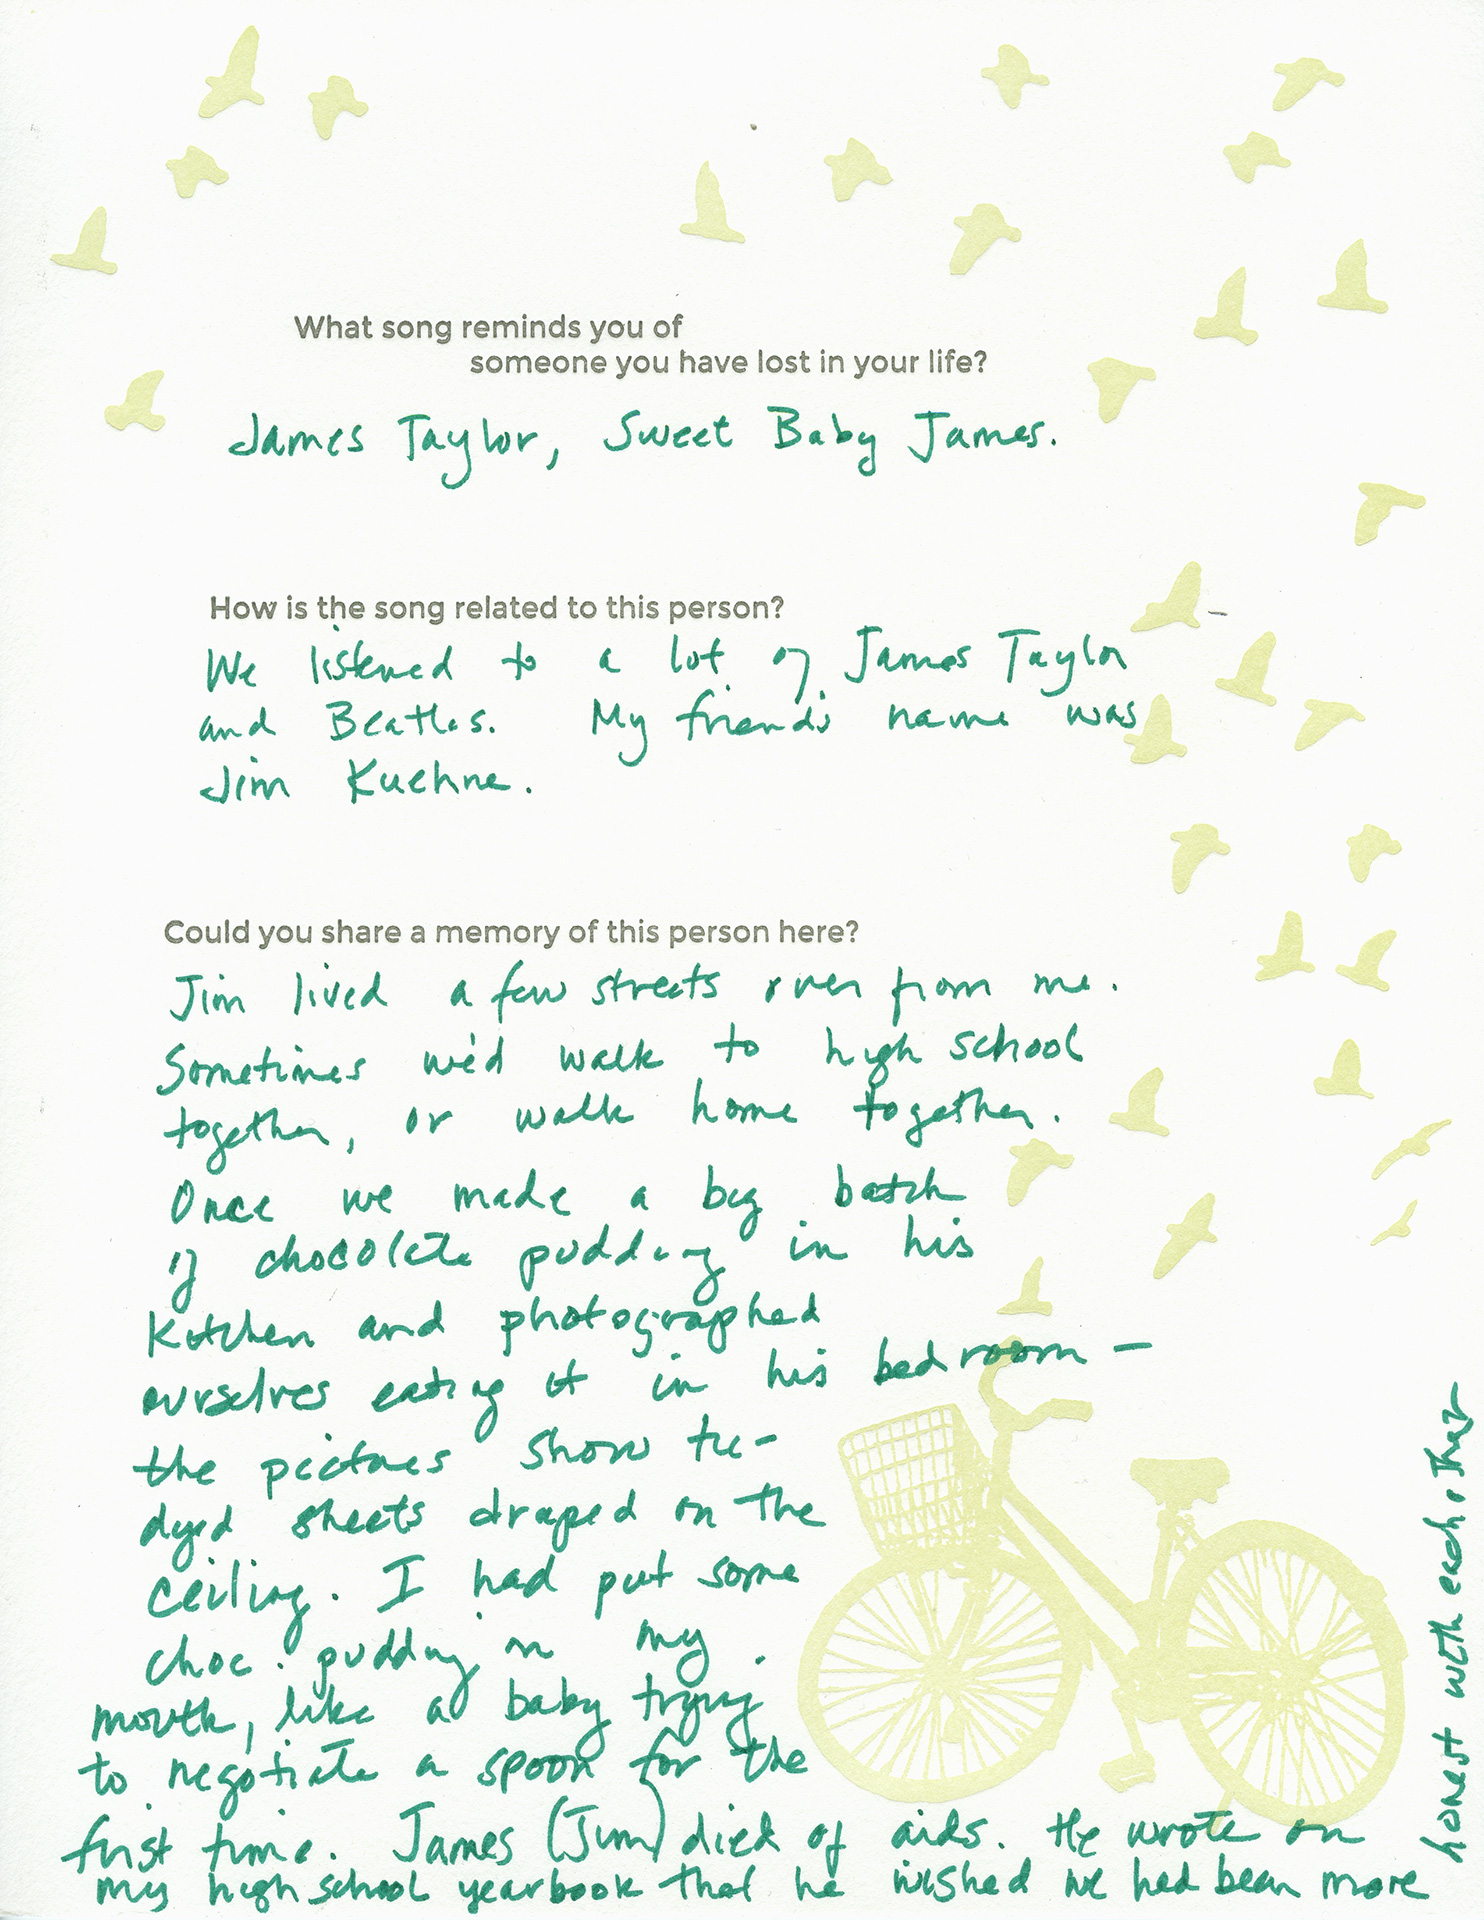 What song reminds you of
someone you have lost in your life?
James Taylor, Sweet Baby James.
How is the song related to this person?
We listened to a lot of James Taylor
and Beatles. My friend's name was
Jim Kuehne.
Could you share a memory of this person here?
Jim lived a few streets over from me.
Sometimes we'd walk to high school
together, or walk home together.
Once we made a big batch
of chocolate pudding in his
kitchen and photographed
ourselves eating it in his bedroom —
the pictures show tie-
dyed sheets draped on the
ceiling. I had put some
choc. pudding in my
mouth, like a baby trying
to negotiate a spoon for the
first time. James (Jim) died of aids. He wrote on
my high school yearbook that he wished we had been more
honest with each other